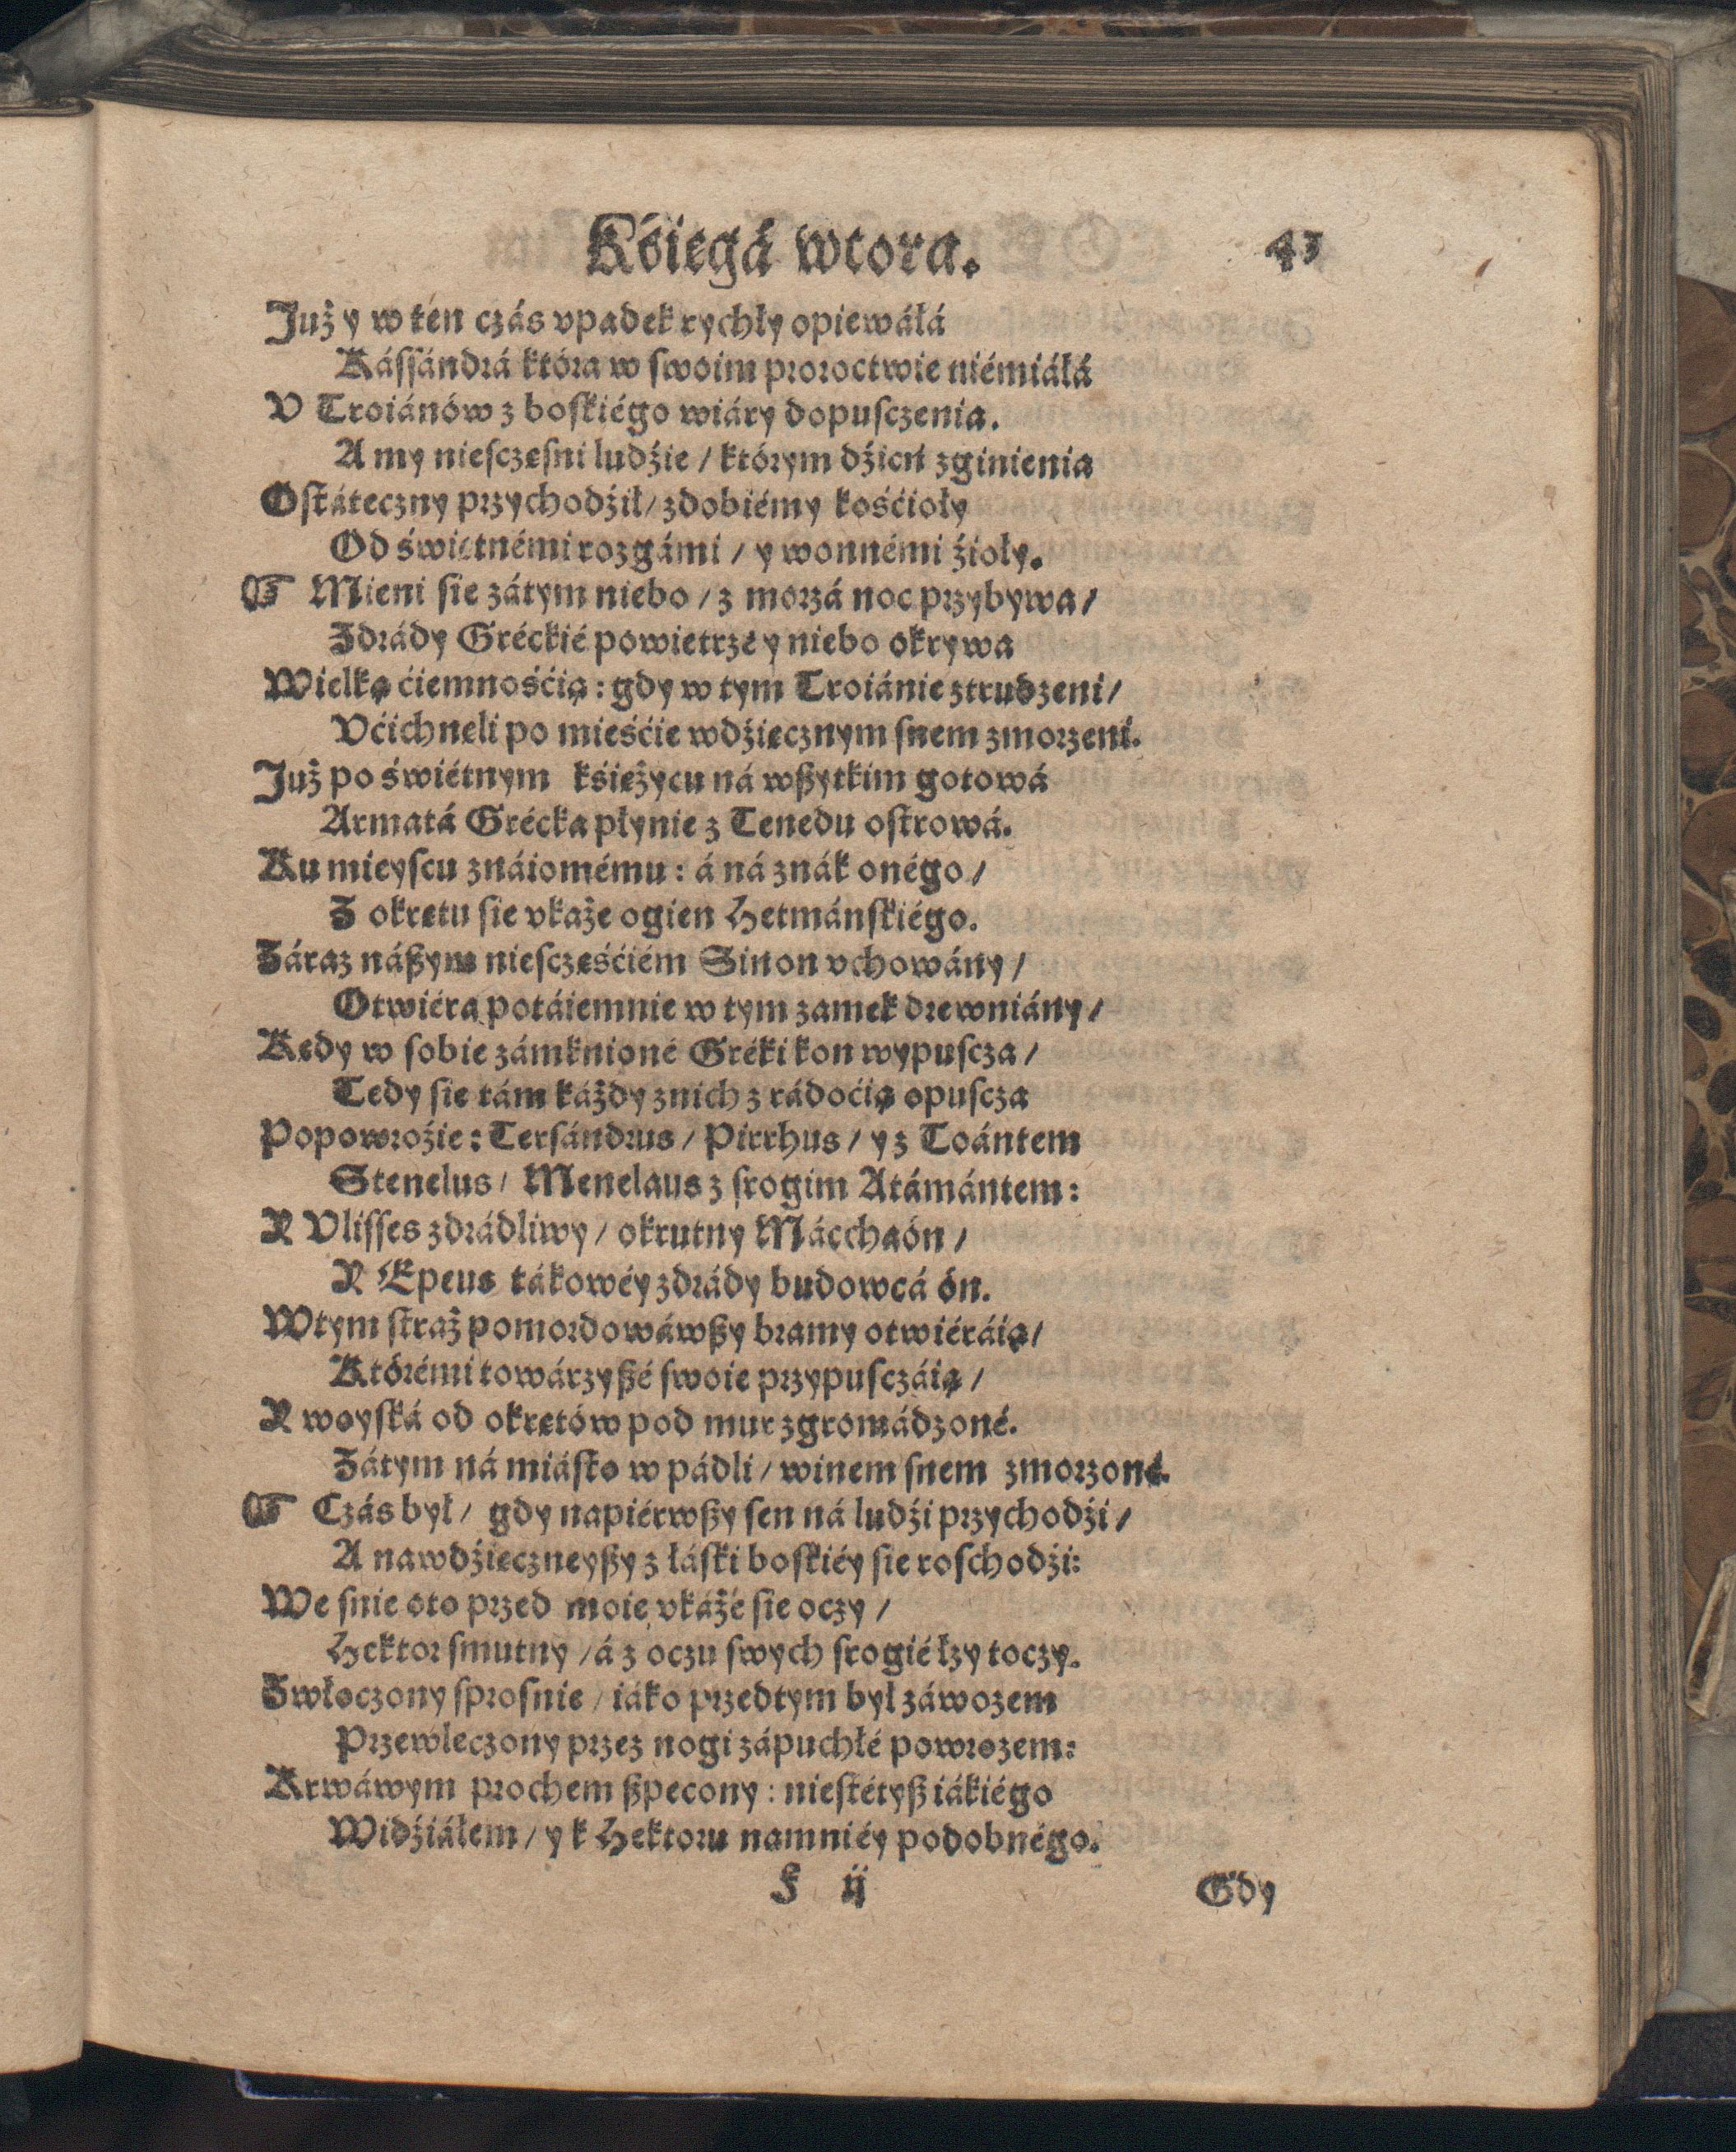 Kśięgá wtora. 43
Już y w tén czás vpadek rychły opiewáłá
Kássándrá która w swoim proroctwie niémiáłá
V Troiánów z boskiégo wiáry dopusczenia.
A my niesczęsni ludźie / którym dźień zginienia
Ostáteczny przychodźił / zdobiémy kośćioły
Od świetnémi rozgámi / y wonnémi źioły.
☞ Mieni sie zátym niebo / z morzá noc przybywa /
Zdrády Gréckié powietrze y niebo okrywa
Wielką ćiemnośćią : gdy w tym Troiánie ztrudzeni /
Vćichnęli po mieśćie wdźięcznym snem zmorzeni.
Już po świétnym kśiężycu ná wßytkim gotowá
Armatá Grécka płynie z Tenedu ostrowá.
Ku mieyscu znáiomému : á ná znák onégo /
Z okrętu sie vkaże ogien Hetmánskiégo.
Záraz náßym niesczęśćiém Sinon vchowány /
Otwiéra potáiemnie w tym zamek drewniány /
Kędy w sobie zámknioné Gréki kon wypuscza /
Tedy sie tám káżdy znich z rádoćią opuscza
Popowroźie : Tersándrus / Pirrhus / y z Toántem
Stenelus / Menelaus z srogim Atámántem :
Y Vlisses zdrádliwy / okrutny Mácchaón /
Y Epeus tákowéy zdrády budowcá ón.
Wtym straż pomordowáwßy bramy otwiéráią /
Którémi towárzyßé swoie przypusczáią /
Y woyská od okrętów pod mur zgromádzoné.
Zátym ná miásto w pádli / winem snem zmorzoné.
☞ Czás był / gdy napiérwßy sen ná ludźi przychodźi /
A nawdźięczneyßy z łáski boskiéy sie roschodźi :
We snie oto przed moie vkáżé sie oczy /
Hektor smutny / á z oczu swych srogié łzy toczy.
Zwłoczony sprosnie / iáko przedtym był záwozem
Przewleczony przez nogi zápuchłé powrozem :
Krwáwym prochem ßpecony : niestétyß iákiégo
Widźiáłem / y k Hektoru namniéy podobnégo.
F ij Gdy